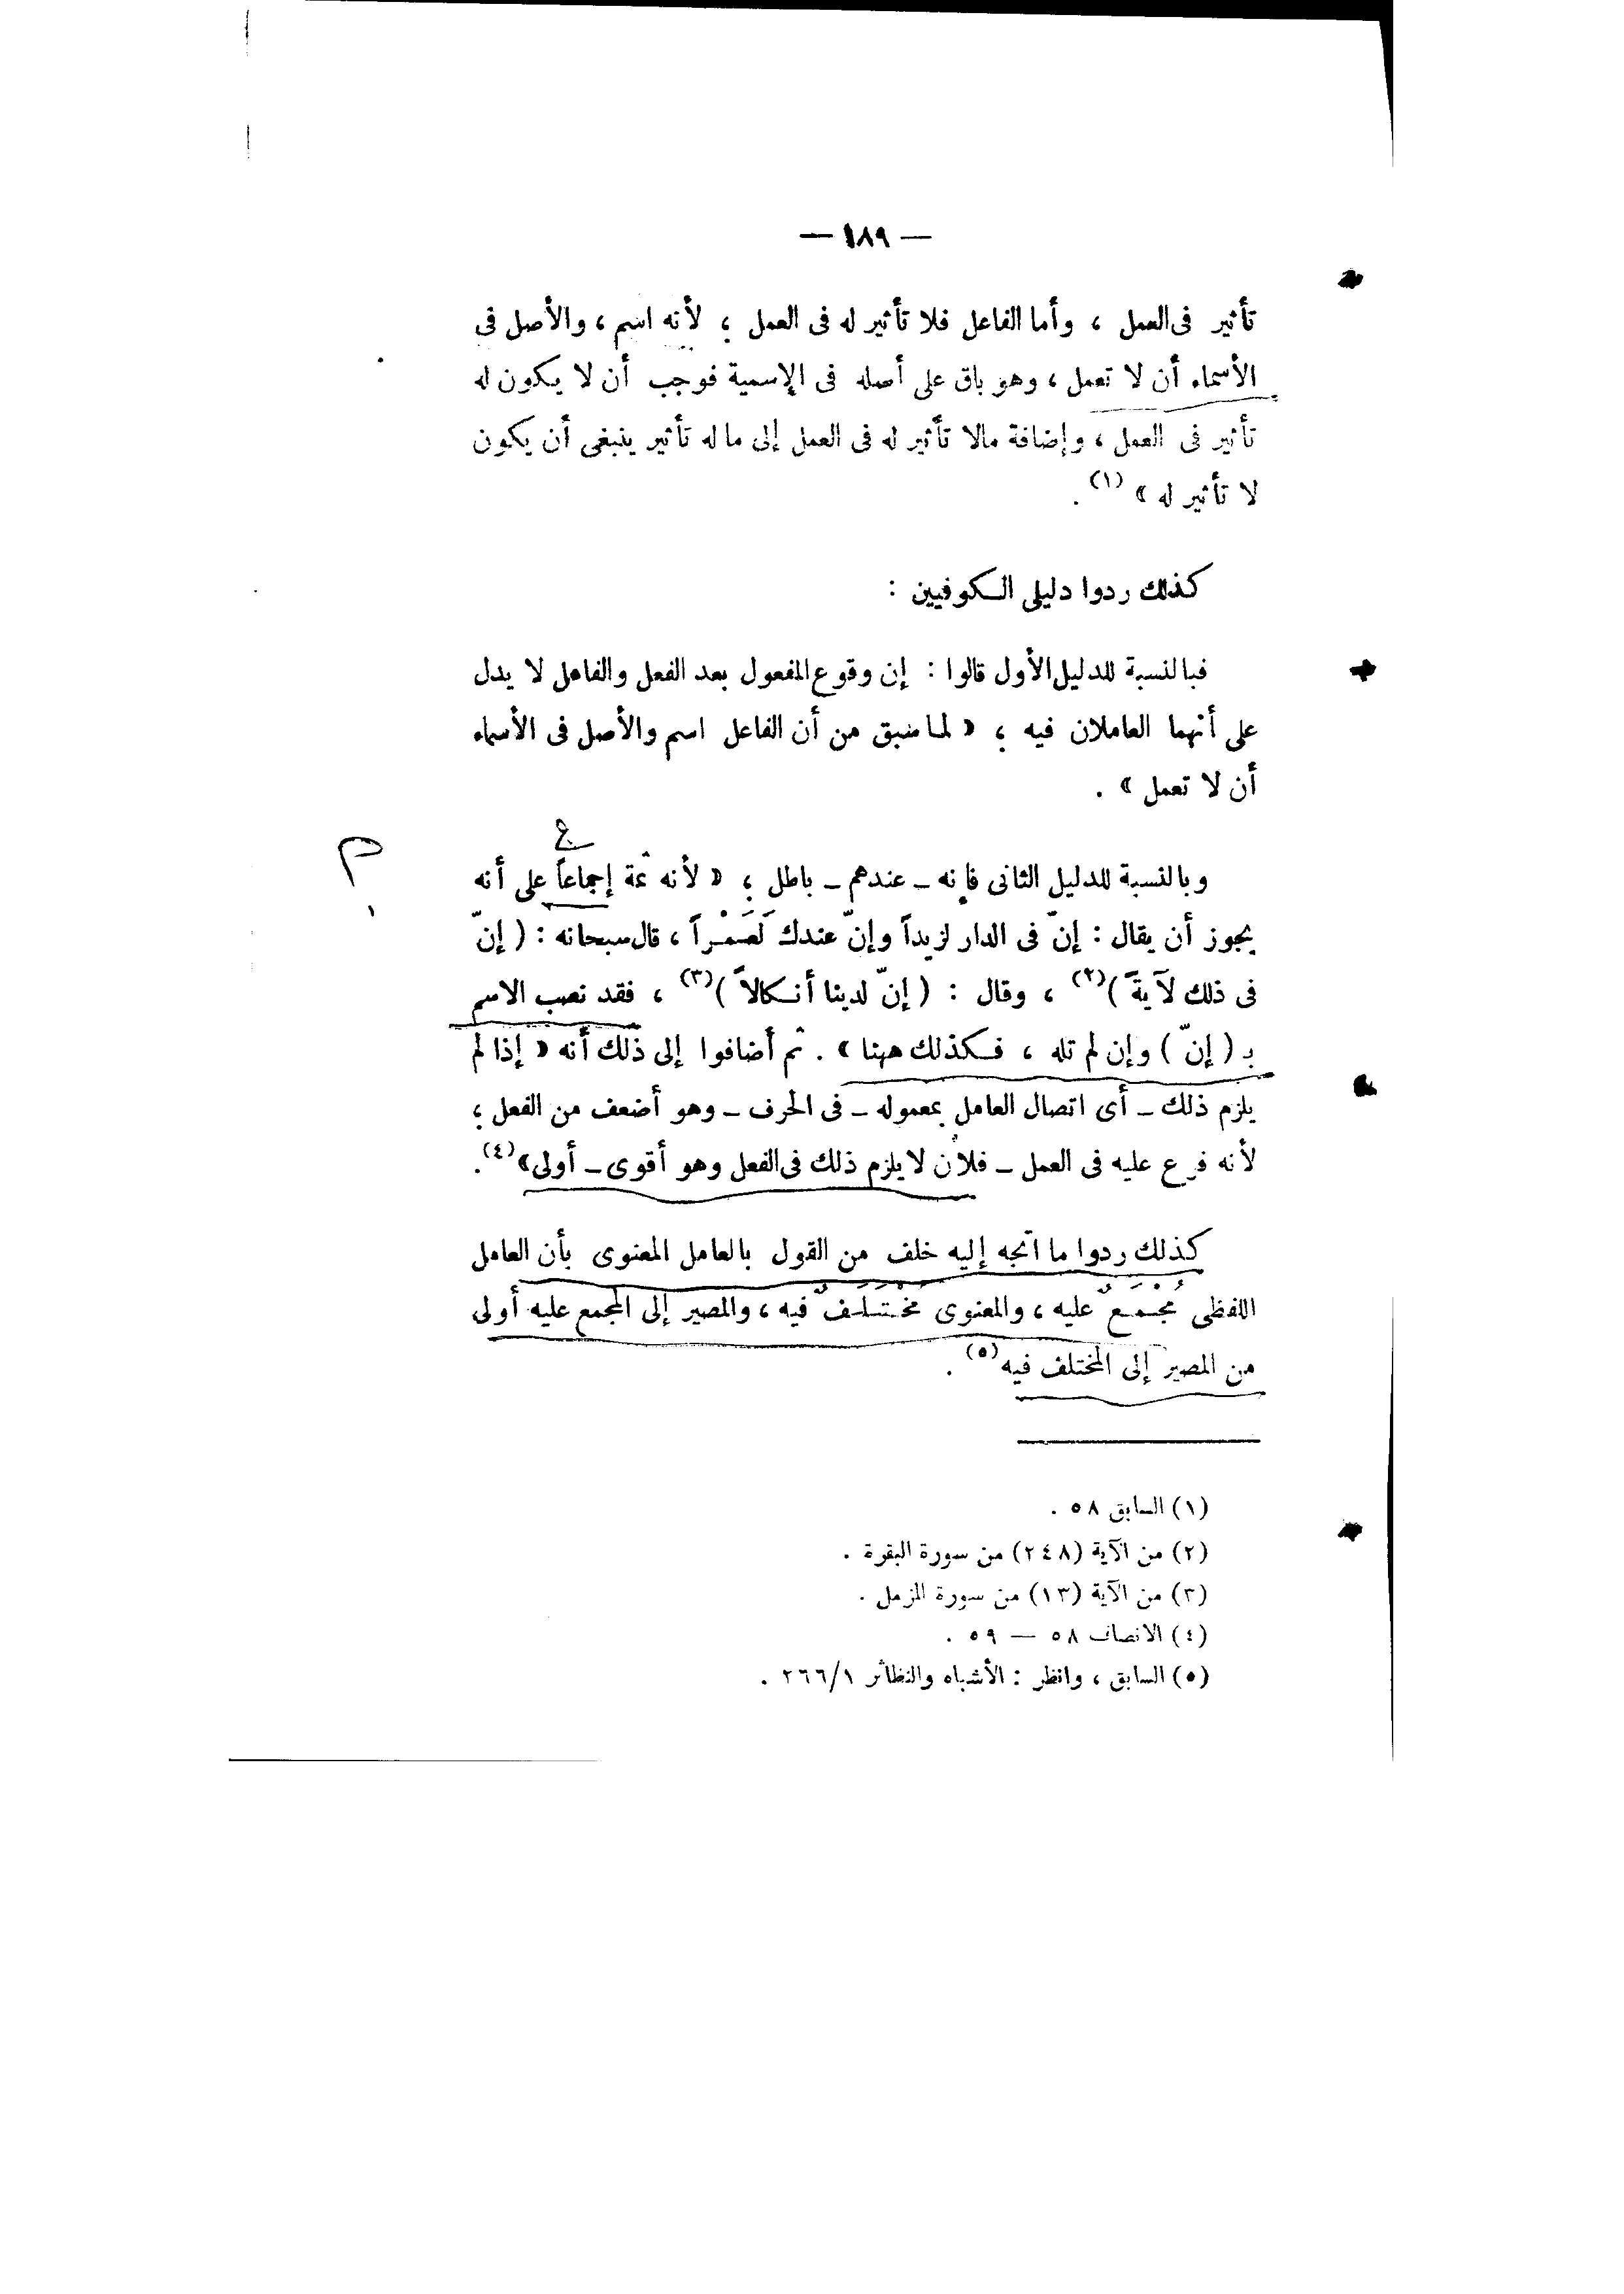 — ١٨٩ —
تأثير فى العمل ، وأما الفاعل فلا تأثير له فى العمل ؛ لأنه اسم ، والأصل فى
الأسماء أن لا تعمل ، وهو باق على أصله فى الإسمية فوجب أن لا يكون له
تأثير فى العمل ، وإضافة مالا تأثير له فى العمل إلى ما له تأثير ينبغى أن يكون
لا تأثير له » (١) .
كذلك ردوا دليلى الكوفيين :
فبالنسبة للدليل الأول قالوا : إن وقوع المفعول بعد الفعل والفاعل لا يدل
على أنهما العاملان فيه ؛ « لما سبق من أن الفاعل اسم والأصل فى الأسماء
أن لا تعمل » .
وبالنسبة للدليل الثانى فإنه – عندهم – باطل ؛ « لأنه ثمة إجماعاً على أنه
يجوز أن يقال : إنّ فى الدار لزيداً وإنّ عندك لَعَمْراً ، قال سبحانه : ( إنّ
فى ذلك لآيةً )(٢) ، وقال : ( إنّ لدينا أنكالاً )(٣) ، فقد نصب الاسم
بـ ( إنّ ) وإن لم تله ، فكذلك ههنا » . ثم أضافوا إلى ذلك أنه « إذا لم
يلزم ذلك – أى اتصال العامل بمعموله – فى الحرف – وهو أضعف من الفعل ؛
لأنه فرع عليه فى العمل – فلأن لا يلزم ذلك فى الفعل وهو أقوى – أولى »(٤).
كذلك ردوا ما اتجه إليه خلف من القول بالعامل المعنوى بأن العامل
اللفظى مُجْمَعٌ عليه ، والمعنوى مُخْتَلَفٌ فيه ، والمصير إلى المجمع عليه أولى
من المصير إلى المختلف فيه(٥) .
(١) السابق ٥٨ .
(٢) من الآية (٢٤٨) من سورة البقرة .
(٣) من الآية (١٣) من سورة المزمل .
(٤) الانصاف ٥٨ — ٥٩ .
(٥) السابق ، وانظر : الأشباه والنظائر ٢٦٦/١ .